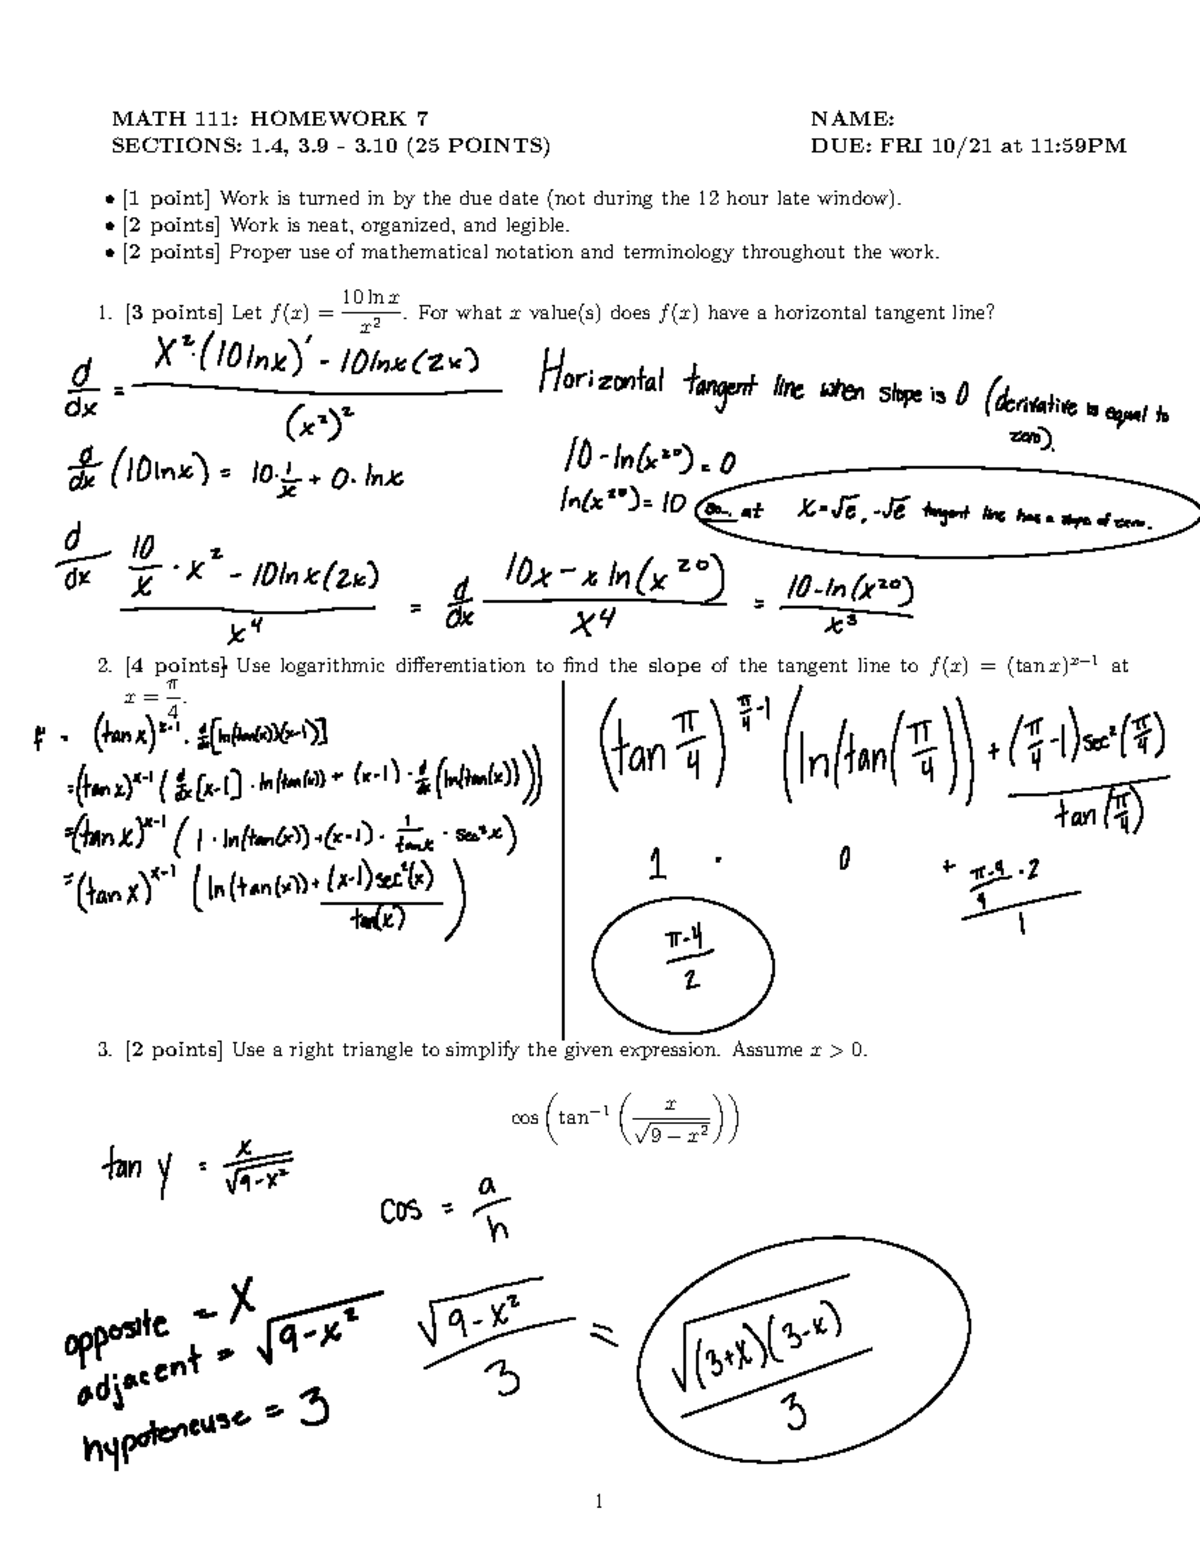 MATH 111: HOMEWORK 7 NAME:
SECTIONS: 1.4, 3.9 - 3.10 (25 POINTS) DUE: FRI 10/21 at 11:59PM
• [1 point] Work is turned in by the due date (not during the 12 hour late window).
• [2 points] Work is neat, organized, and legible.
• [2 points] Proper use of mathematical notation and terminology throughout the work.
1. [3 points] Let f(x) = 10 ln x / x². For what x value(s) does f(x) have a horizontal tangent line?
d/dx = (x²·(10lnx)' - 10lnx(2x)) / (x²)²
Horizontal tangent line when slope is 0 (derivative is equal to zero).
d/dx (10lnx) = 10·1/x + 0·lnx
10-ln(x²⁰) = 0
ln(x²⁰) = 10 so at x=√e, -√e tangent line has a slope of zero.
d/dx (10/x · x² - 10lnx(2x)) / x⁴ = d/dx (10x - x ln(x²⁰)) / x⁴ = (10-ln(x²⁰)) / x³
2. [4 points] Use logarithmic differentiation to find the slope of the tangent line to f(x) = (tan x)ˣ⁻¹ at
x = π/4.
f = (tan x)ˣ⁻¹ · d/dx[ln(tan(x))(x-1)]
= (tan x)ˣ⁻¹ (d/dx[x-1] · ln(tan(x)) + (x-1) · d/dx (ln(tan(x))))
= (tan x)ˣ⁻¹ (1 · ln(tan(x)) + (x-1) · 1/tanx · sec²x)
= (tan x)ˣ⁻¹ (ln(tan(x)) + (x-1)sec²(x) / tan(x))
(tan π/4)^(π/4 -1) (ln(tan(π/4)) + (π/4 -1)sec²(π/4) / tan(π/4)
1 · 0 + (π-4)/4 · 2 / 1
π-4 / 2
3. [2 points] Use a right triangle to simplify the given expression. Assume x > 0.
cos(tan⁻¹(x / √(9 − x²)))
tan y = x / √(9-x²)
cos = a / h
opposite = x
adjacent = √(9-x²)
hypoteneuse = 3
√(9-x²) / 3 = √((3+x)(3-x)) / 3
1